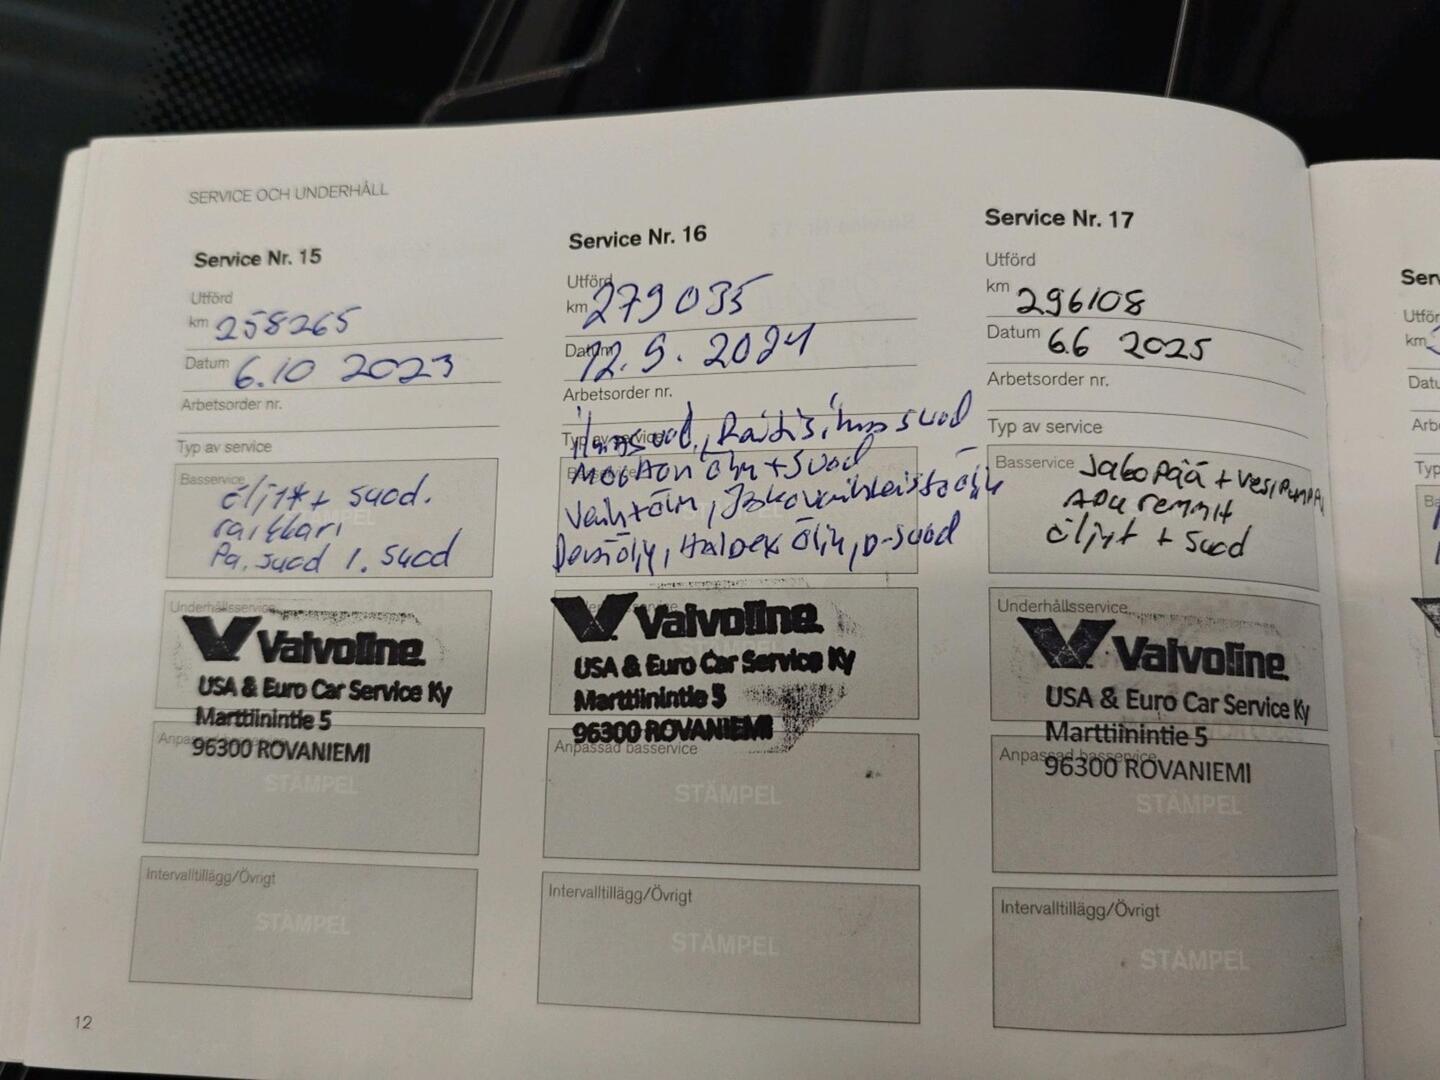 SERVICE OCH UNDERHÅLL
Service Nr. 15
Utförd
km 258265
Datum 6.10 2023
Arbetsorder nr.
Typ av service
Basservice
öljyt + suod.
raikkari
Pa. suod 1. suod
Underhållsservice
Valvoline
USA & Euro Car Service Ky
Marttiinintie 5
96300 ROVANIEMI
Anpassad basservice
STÄMPEL
Intervalltillägg/Övrigt
STÄMPEL
12
Service Nr. 16
Utförd
km 279035
Datum 12.9.2024
Arbetsorder nr.
Typ av service
suod
Moottori öljy + suod
öljy
Haldex öljy, p-suod
Valvoline
USA & Euro Car Service Ky
Marttiinintie 5
96300 ROVANIEMI
Anpassad basservice
STÄMPEL
Intervalltillägg/Övrigt
STÄMPEL
Service Nr. 17
Utförd
km 296108
Datum 6.6 2025
Arbetsorder nr.
Typ av service
Basservice Jakopää + vesipumppu
APU remmit
öljyt + suod
Underhållsservice
Valvoline
USA & Euro Car Service Ky
Marttiinintie 5
96300 ROVANIEMI
Anpassad basservice
STÄMPEL
Intervalltillägg/Övrigt
STÄMPEL
km